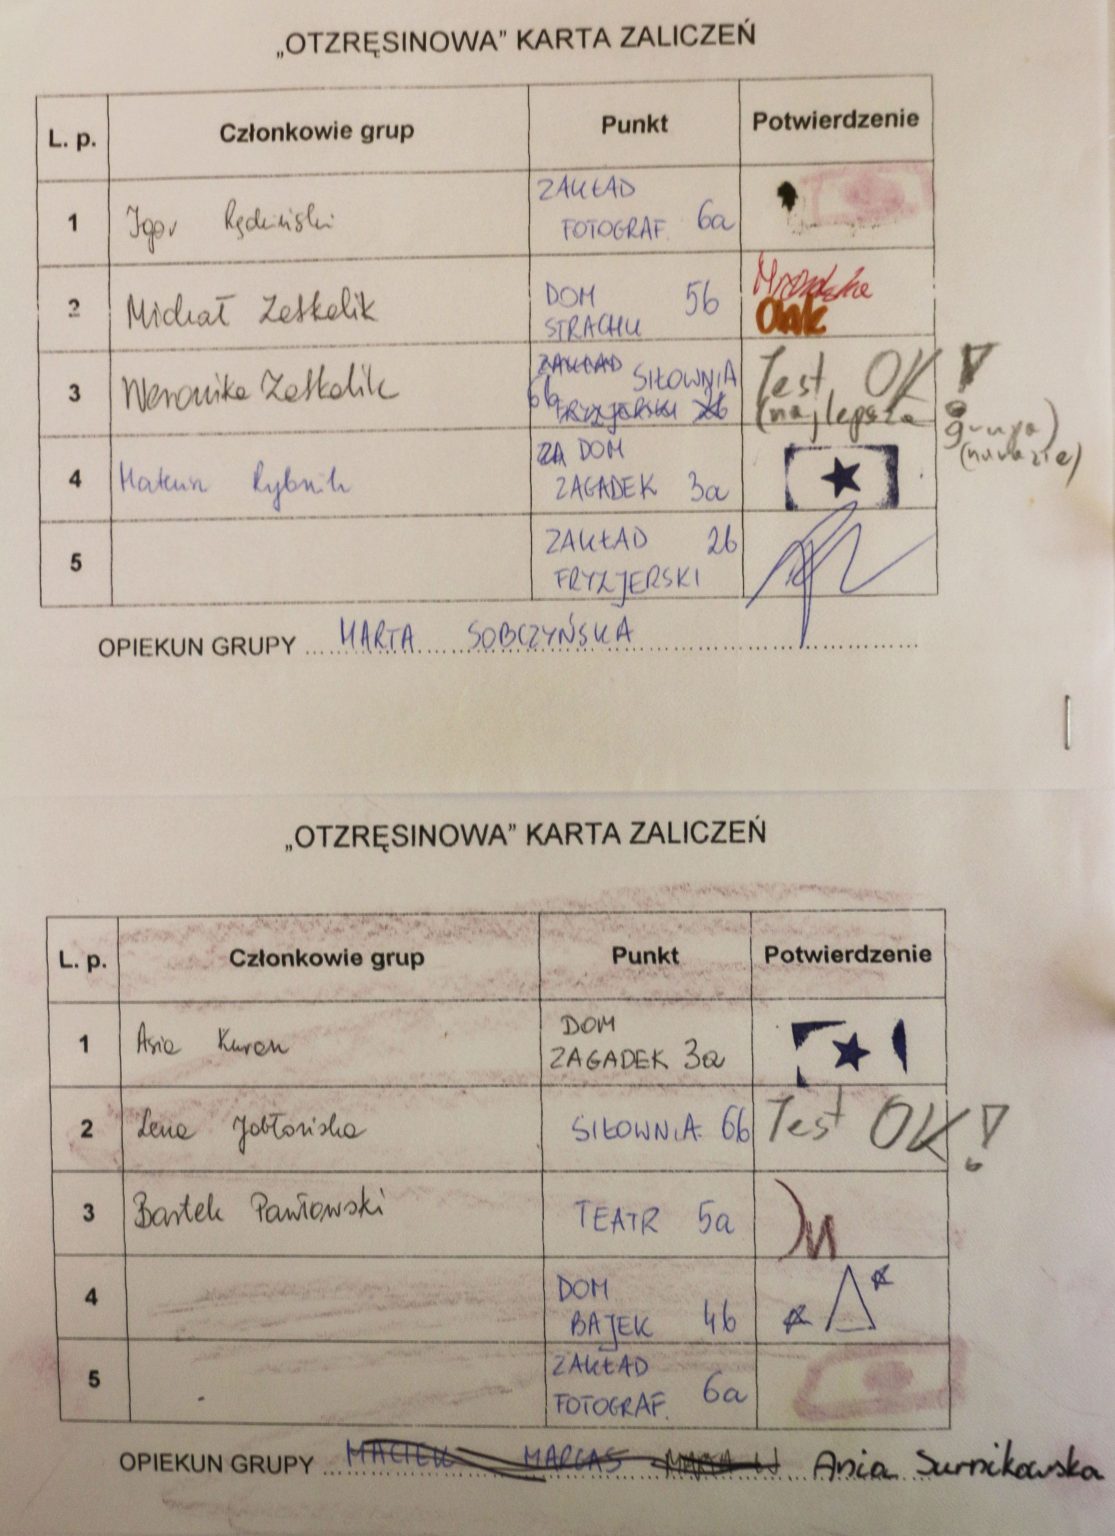 „OTZRĘSINOWA” KARTA ZALICZEŃ
L. p. Członkowie grup Punkt Potwierdzenie
1 Igor ZAKŁAD
FOTOGRAF. 6a
2 Michał Zeskalik DOM 5b
STRACHU
3 Weronika Zeskalik ZAKŁAD SIŁOWNIA Test OK!
6b FRYZJERSKI 2b (najlepsza grupa)
(narazie)
4 Mateusz Rybnik ZA DOM
ZAGADEK 3a
5 ZAKŁAD 2b
FRYZJERSKI
OPIEKUN GRUPY MARTA SOBCZYŃSKA
„OTZRĘSINOWA” KARTA ZALICZEŃ
L. p. Członkowie grup Punkt Potwierdzenie
1 Asia Kuran DOM
ZAGADEK 3a
2 Lena Jabłońska SIŁOWNIA 6b Test OK!
3 Bartek Pawłowski TEATR 5a
4 DOM
BAJEK 4b
5 ZAKŁAD
FOTOGRAF. 6a
OPIEKUN GRUPY MACIEK Ania Surnikowska